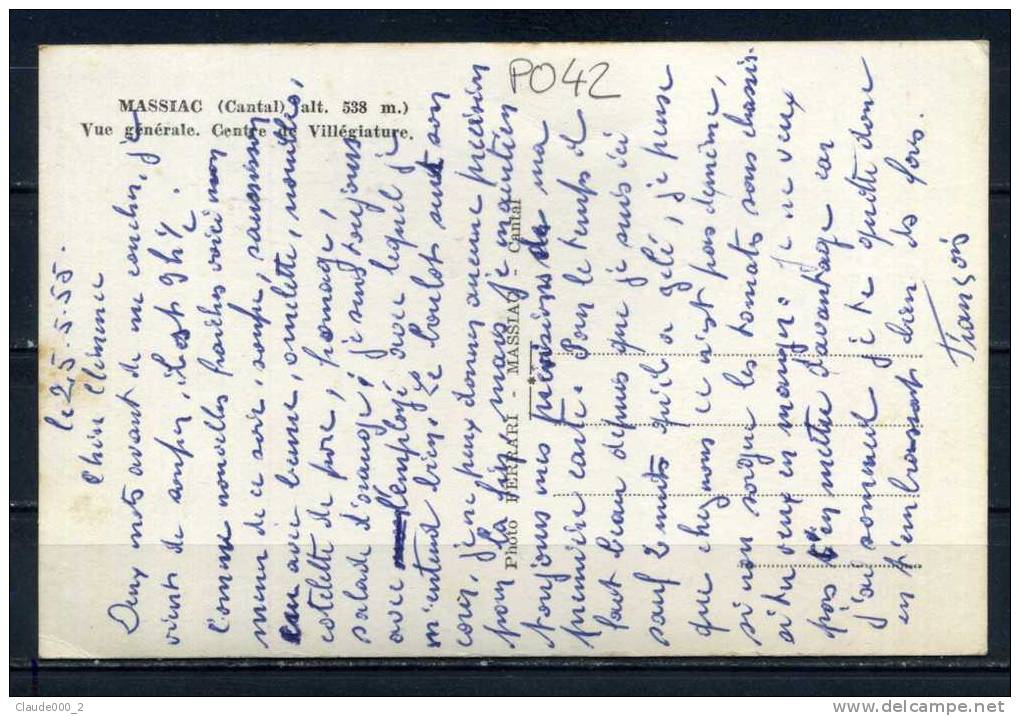 MASSIAC (Cantal) alt. 538 m.)
Vue générale. Centre de Villégiature.
PO42
Photo FERRARI - MASSIAC - Cantal
le 25.5.55.
Chère Clémence
Deux mots avant de me coucher, je
viens de souper, il est 9h¼.
Comme nouvelles fraîches voici mon
menu de ce soir, soupe, saucisson
avec beurre, omelette, nouilles,
cotelette de porc, fromage,
salade d'orange; je suis toujours
avec l'employé avec lequel je
m'entend bien. Le boulot suit son
cours, je ne peux donner aucune précision
pour la fin mais je maintiens
toujours mes prévisions de ma
première carte. Pour le temps il
fait beau depuis que je suis ici
sauf 2 nuits qu'il a gelé, je pense
que chez nous ce n'est pas de même,
sinon soigne les tomates sous chassis
si tu veux en manger. Je ne veux
pas t'en mettre davantage car
j'ai sommeil je te quitte donc
en t'embrassant bien des fois.
François
Claude000_2